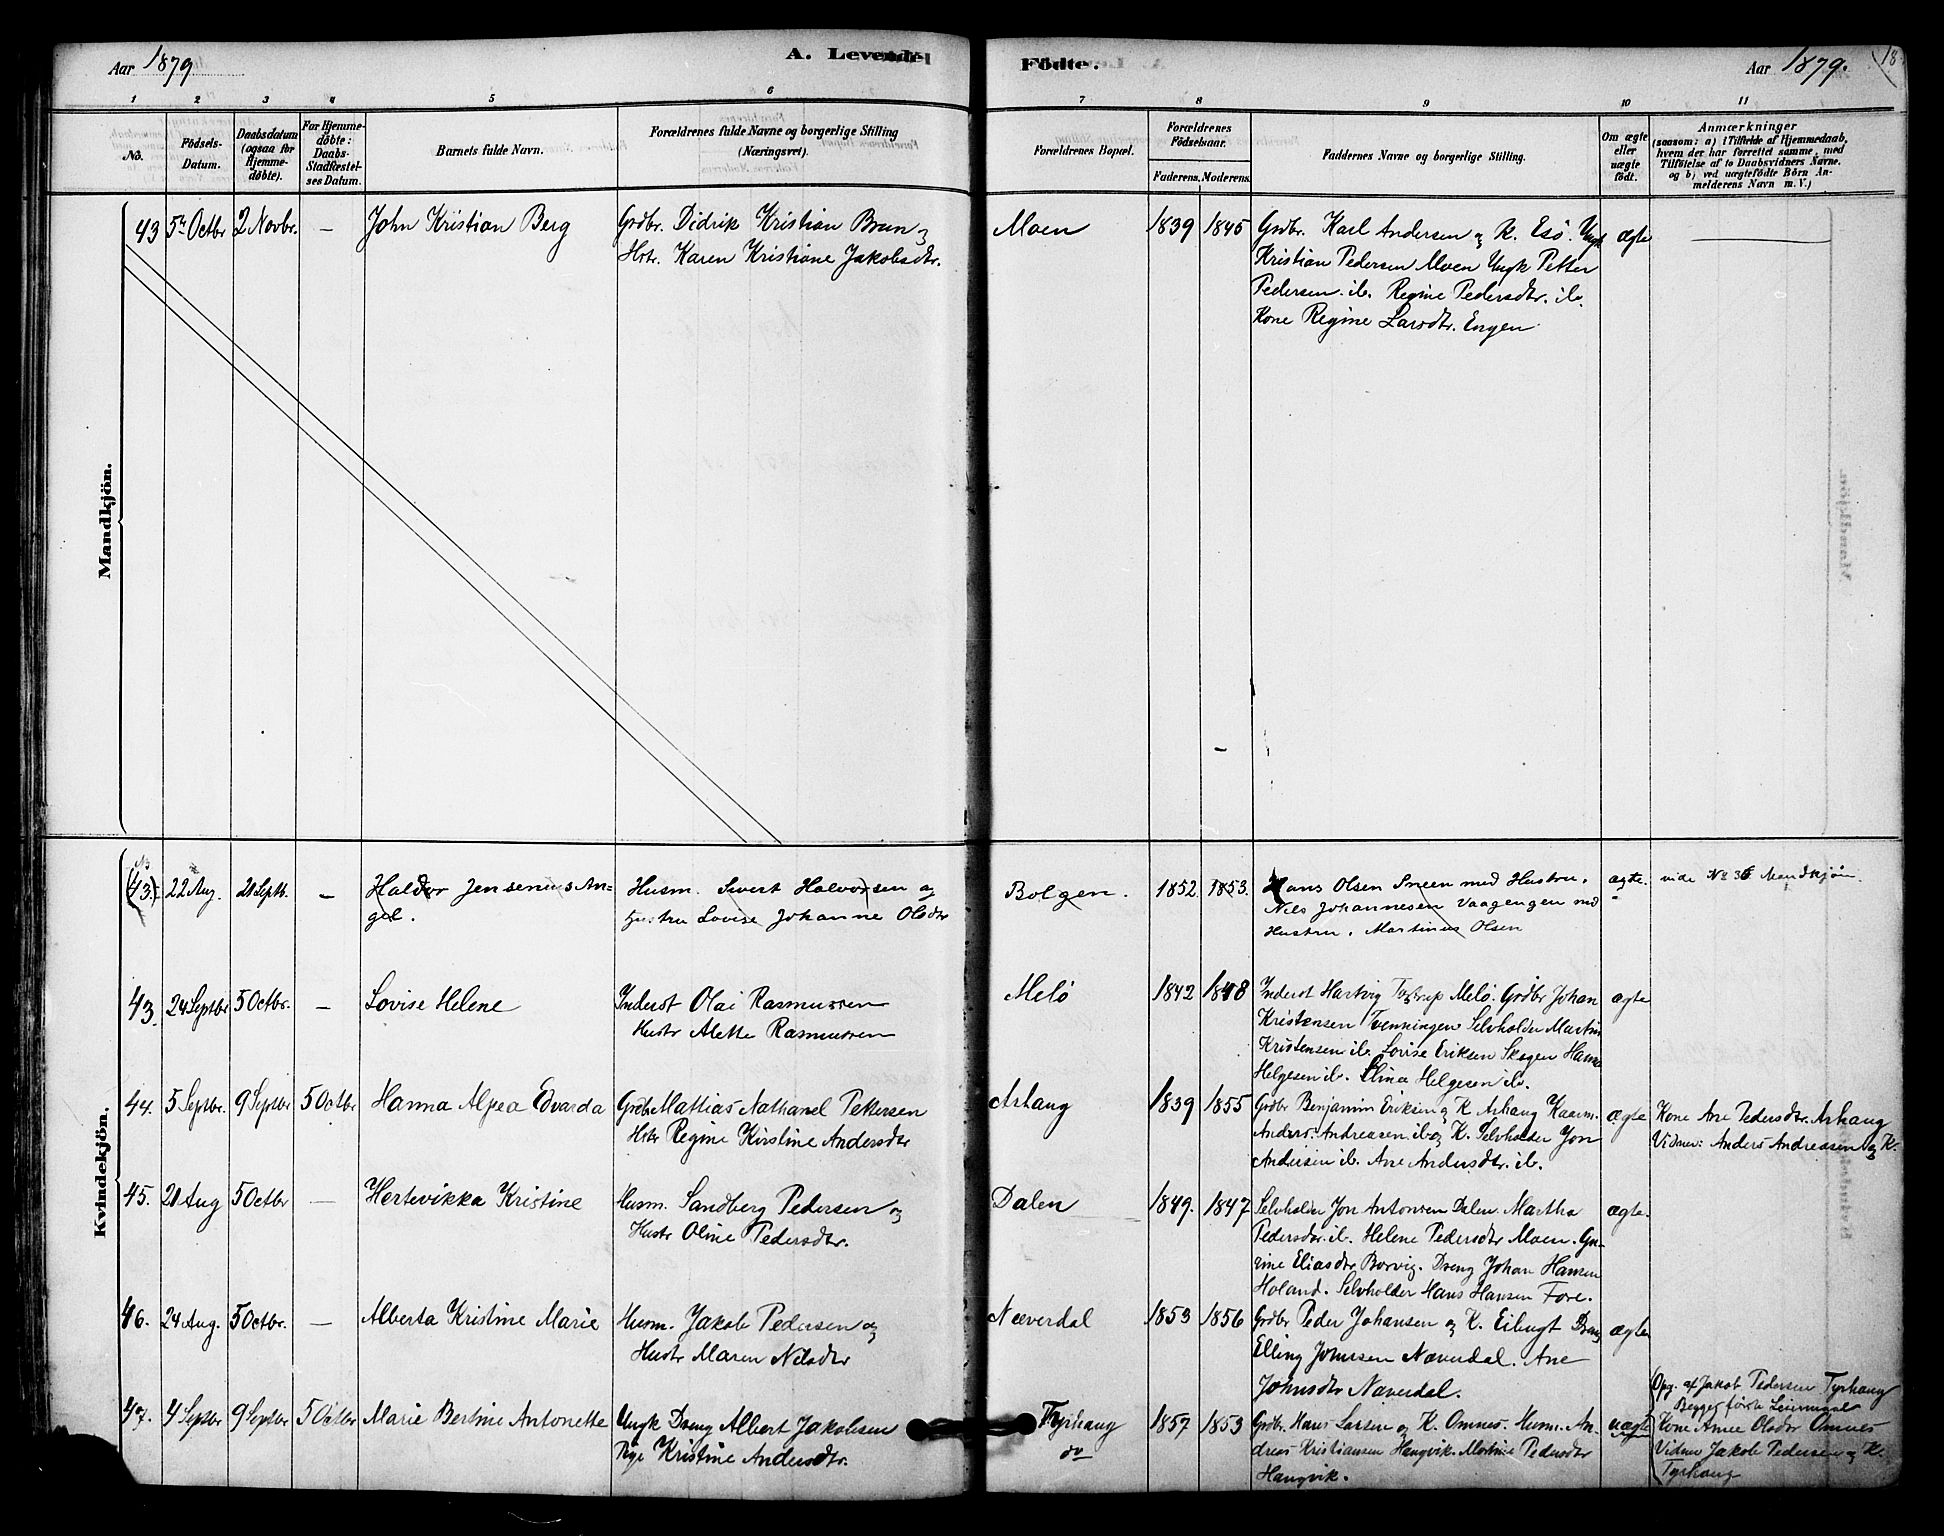 Aar 1879
A. Levendel
Födte.
Aar 1879.
18
1 2 3 4 5 6 7 8 9 10 11
No.
Födsels-
Datum.
Daabsdatum
(ogsaa for
Hjemme-
døbte).
For Hjemme-
døbte:
Daabs-
Stadfæstel-
ses Datum.
Barnets fulde Navn.
Forældrenes fulde Navne og borgerlige Stilling
(Næringsvei).
Forældrenes Bopæl.
Forældrenes
Födselsaar.
Faderens. Moderens.
Faddernes Navne og borgerlige Stilling.
Om ægte
eller
uægte
født.
Anmærkninger
(saasom: a) i Tilfælde af Hjemmedaab,
hvem der har forrettet samme, med
Tilføielse af to Daabsvidners Navne.
og b) ved uægtefødte Börn An-
melderens Navn m. V.)
Mandkjön.
43 5te Octbr 2 Novbr. — John Kristian Berg
Grdbr. Didrik Kristian Brun og
Hstr. Karen Kristiane Jakobsdtr.
Moen 1839 1845
Grdbr. Karl Andersen og K. Esø. Ungk
Kristian Pedersen Moen Ungk Petter
Pedersen ib. Regine Pedersdtr. ib.
Kone Regine Larsdtr. Engen
ægte
Kvindekjön.
(43) 22 Aug. 21 Septb. — Haldor Jensenius An=
gel.
Husm. Sivert Halvorsen og
Hustru Lovise Johanne Olsdtr
Bolgen. 1852 1853.
Hans Olsen Sneen med Hustru.
Nils Johannesen Vaagengen med
Hustru. Martinus Olsen
ægte. vide No 36 Mandkjön.
43. 24 Septbr 5 Octbr. — Lovise Helene
Inderst Olai Rasmussen
Hustr Alette Rasmussen
Melö 1842 1848
Inderst Hartvig Melö. Grdbr Johan
Kristensen Tvenningen Selvholder Martin
Kristensen ib. Lovise Eriksen Skogen Hanna
Helgesen ib. Elina Helgesen ib.
ægte
44. 5 Septbr. 9 Septbr 5 Octbr Hanna Alpea Edvarda
Grdbr Mattias Nathanel Pettersen
Hstr Regine Kirstine Andersdtr
Arhaug 1839 1855
Grdbr Benjamin Eriksen og K Arhaug Kaarm.
Anders Andreasen ib og K. Selvholder Jon
Andersen ib. Ane Andersdtr. ib.
ægte Kone Ane Pedersdtr. Arhaug
Vidner: Anders Andreasen og K.
45. 21 Aug 5 Octbr — Hertevikka Kristine
Husm. Sandberg Pedersen og
Hustr Oline Pedersdtr.
Dalen 1849. 1847
Selvholder Jon Antonsen Dalen. Martha
Pedersdtr. ib. Helene Pedersdtr Moen. Gu-
rine Eliasdtr Borvig. Dreng Johan Hansen
Holand. Selvholder Hans Hansen Fore.
ægte.
46. 24 Aug. 5 Octbr. — Alberta Kristine Marie
Husm. Jakob Pedersen og
Hustr Maren Nilsdtr
Næverdal 1853 1856
Grdbr Peder Johansen og K. Eilugt Dreng
Elling Johnsen Næverdal. Ane
Johnsdtr Næverdal.
ægte
47. 4 Septbr 9 Septbr 5 Octbr Marie Bertine Antonette
Ungk Dreng Albert Jakobsen
Pige Kristine Andersdtr.
Tyrhaug
do
1857 1853
Grdbr. Hans Larsen og K. Omnes. Husm. An-
dreas Kristiansen Haugvik. Martine Pedersdtr
Haugvik.
uægte
Opg. af Jakob Pedersen Tyrhaug
Begges første Leiermaal
Kone Anne Olsdtr Omnes
Vidner Jakob Pedersen og K.
Tyrhaug